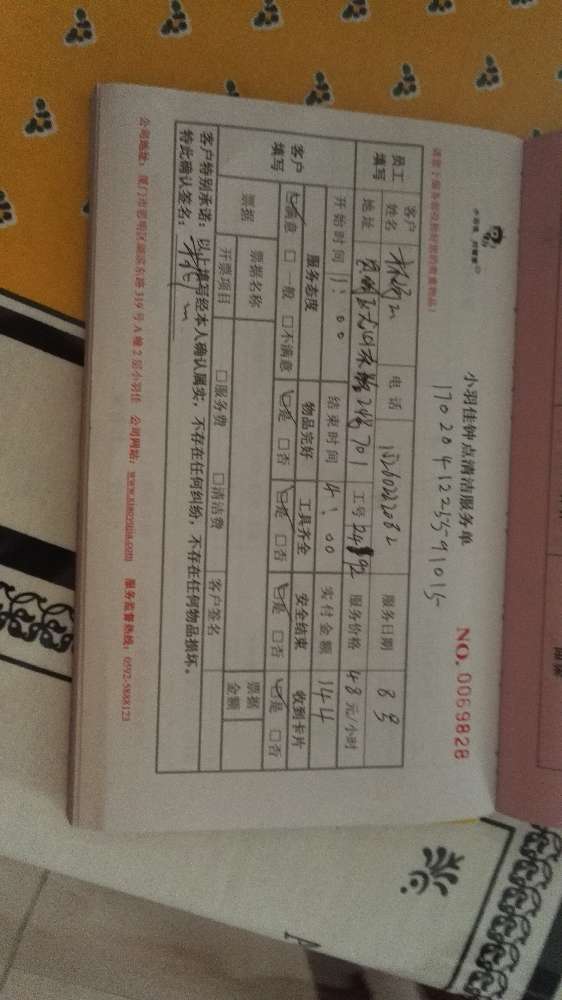 小羽佳钟点清洁服务单
NO. 0069828
请您于服务前收拾好您的贵重物品!
员工填写 客户姓名 电话 服务日期 8号
地址 248 701 工号 服务价格 48元/小时
开始时间 1:00 结束时间 4:00 实付金额 144
客户填写 服务态度 物品完好 工具齐全 安全结束 收到卡片
☑满意 □一般 □不满意 ☑是 □否 ☑是 □否 ☑是 □否 ☑是 □否
票据 票据名称 客户签名 票据金额
开票项目 □服务费 □清洁费
客户特别承诺:以上填写经本人确认属实,不存在任何纠纷,不存在任何物品损坏。
特此确认签名:
公司地址:厦门市思明区湖滨东路319号A幢2层小羽佳 公司网站:www.xiaoyujia.com 服务监督热线:0592-5888123